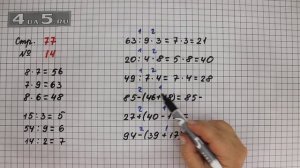 Стр. 77
№ 14
8·7=56
7·9=63
8·6=48
15:3=5
54:9=6
14:2=7
1 2
63:9·3=7·3=21
1 2
20:4·8=5·8=40
1 2
49:7·4=7·4=28
2 1
85-(46+ 8)=85-
27+(40-1
94-(39+17